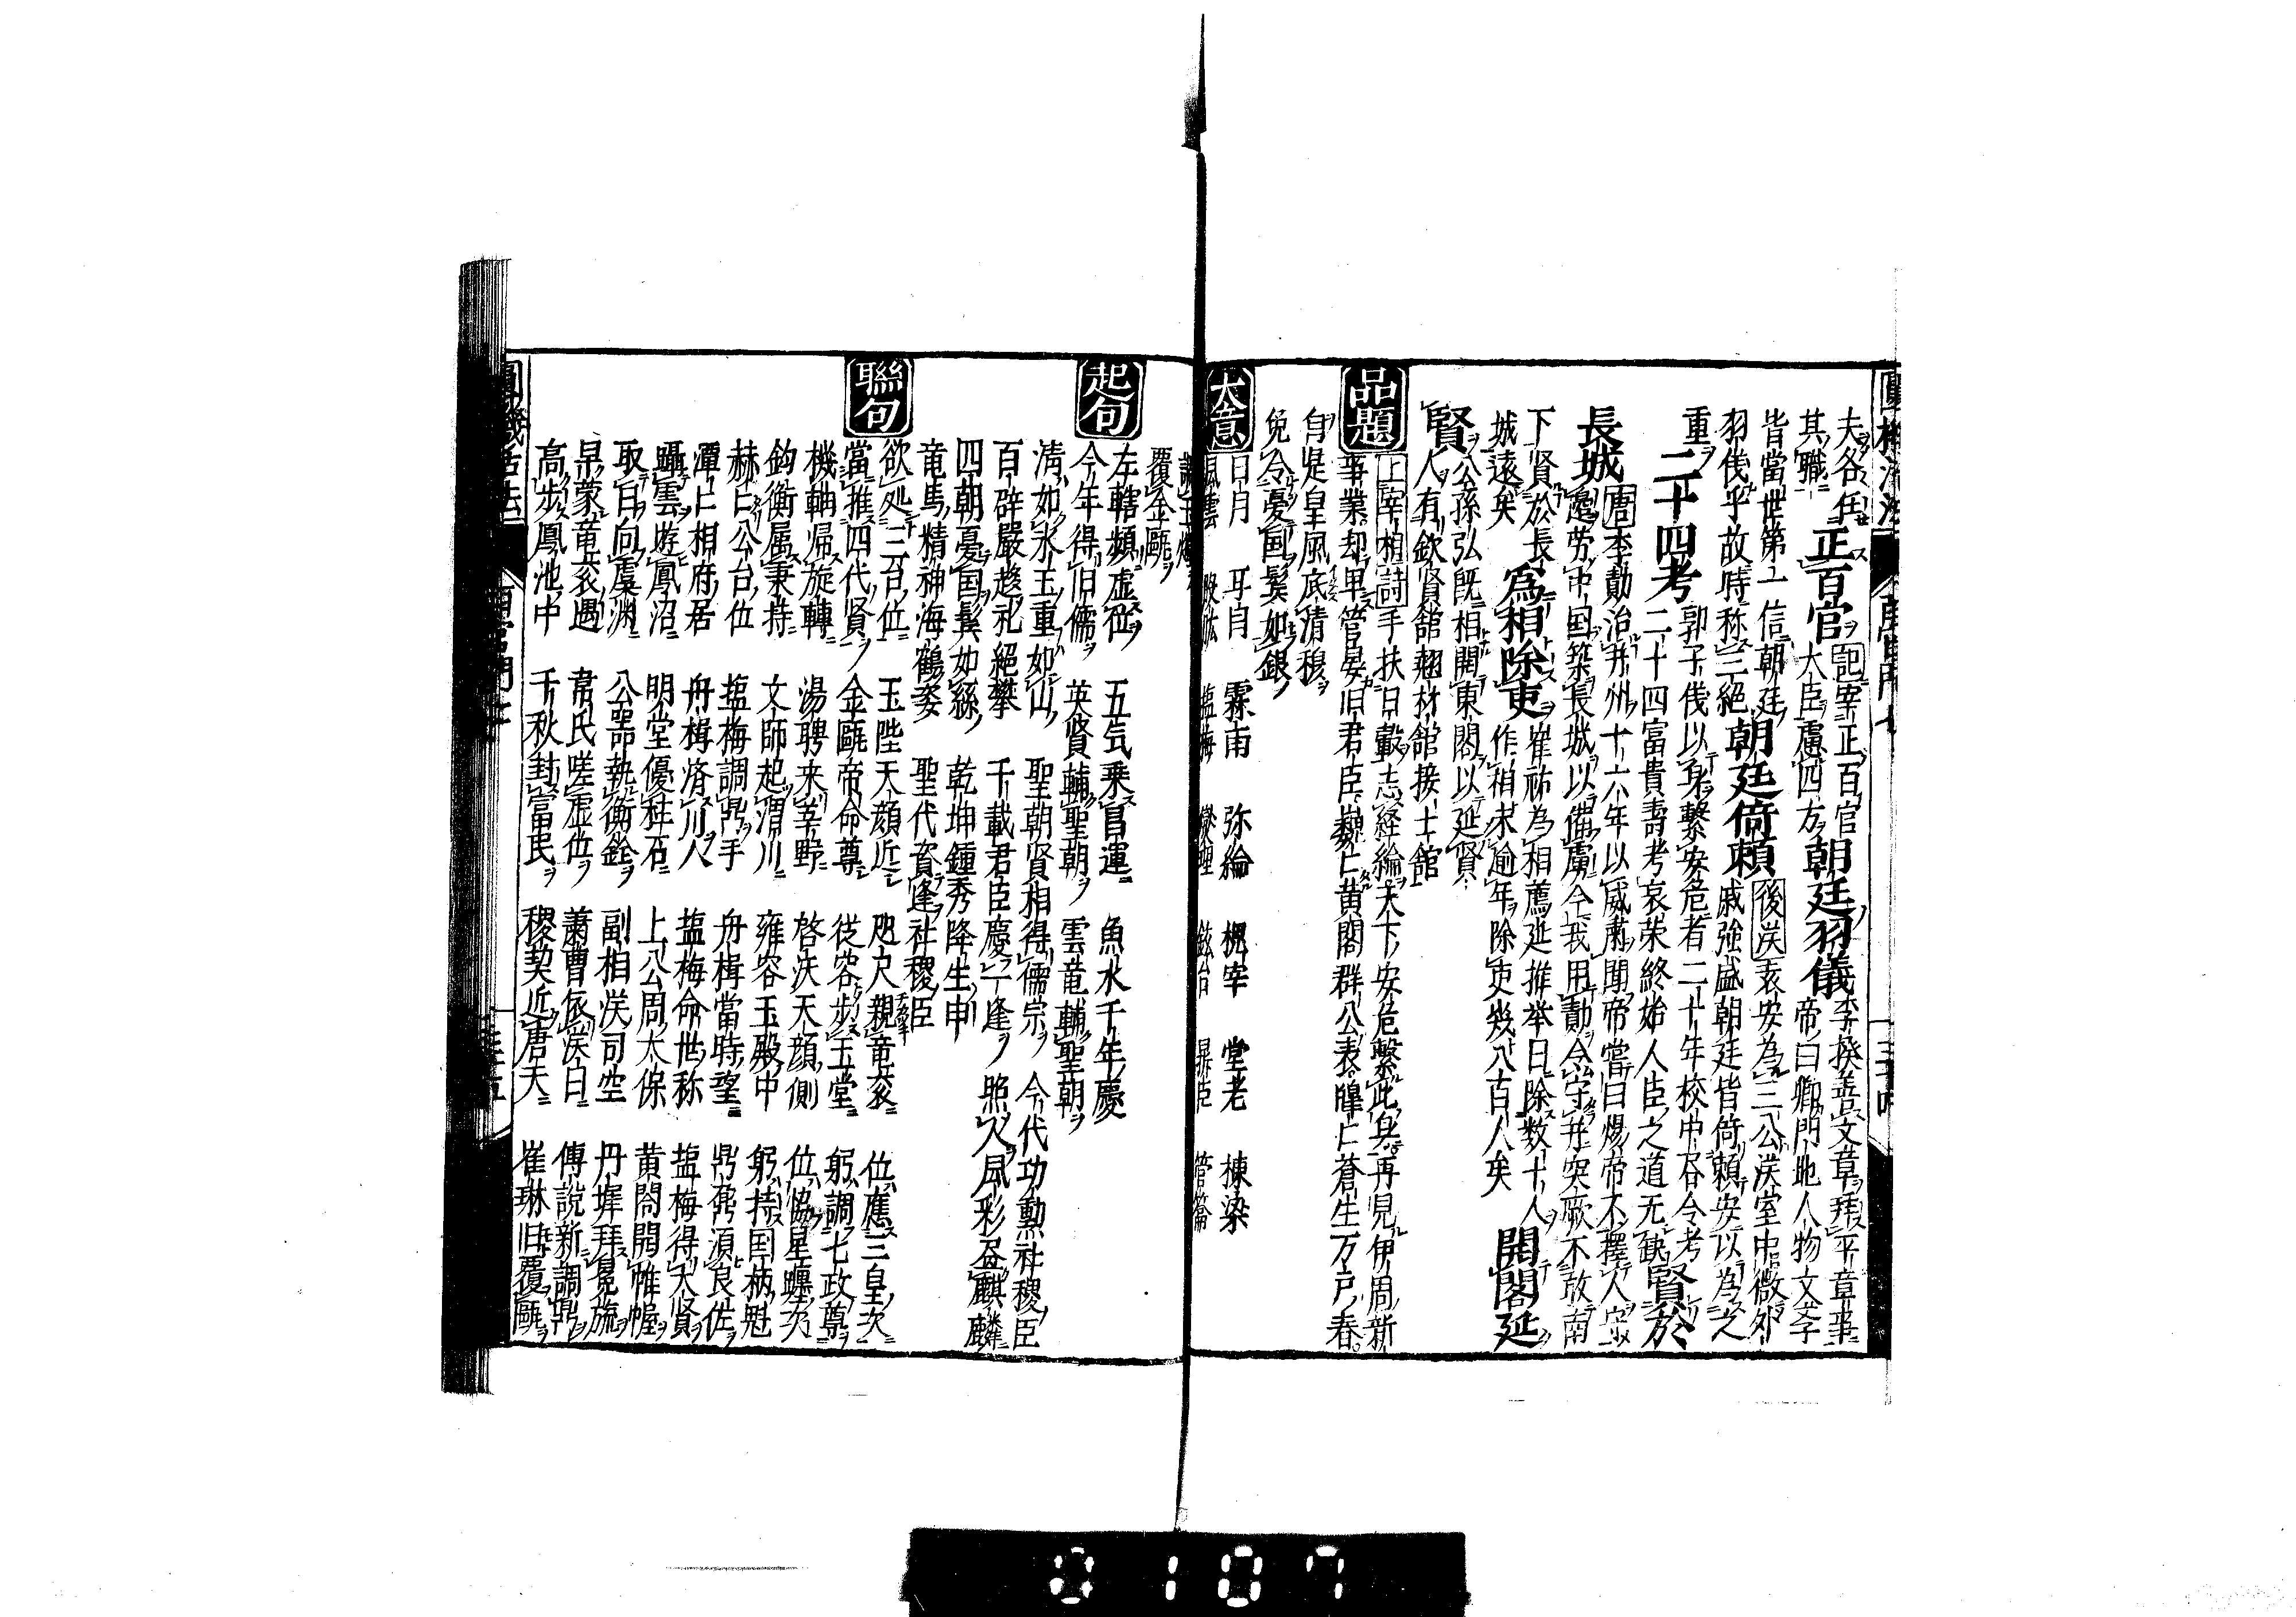 夫各任
其職 正百官 記宰正百官 大臣慮四方 朝廷羽儀 李揆善文章拜平章事 帝曰卿門地人物文孝
皆當世第一信朝廷
羽儀乎故時称三絕 朝廷倚賴 後漢 袁安為三公漢室中微外
戚強盛朝廷皆倚賴安以為之
重 二十四考 郭子儀以身繫安危者二十年校中書令考
二十四富貴壽考哀荣終始人臣之道无缺 賢於
長城 唐 李勣治并州十六年以威肅聞帝當曰煬帝不擇人守
邊労中国築長城以備虜今我用勣令守并突厥不敢南
下賢於長
城遠矣 為相除吏 崔祐為相薦延推举日除数十人
作相未逾年除吏幾八百人矣 開閣延
賢 公孫弘既相開東閣以延賢
人有欽賢舘翹材舘接士舘
品題 上宰相詩 手扶日轂志経綸天下安危繫此身再見伊周新
事業却卑管晏旧君臣巍巍黄閣群公表皥皥蒼生万户春
自是皇風底清穆
免令憂国鬂如銀
大意 日月 耳目 霖雨 弥綸 槐宰 堂老 棟梁
風雲 股肱 塩梅 燮理 鉉台 鼎臣 管籥
覆金甌
起句 左轄頻虚位 五気乗昌運 魚水千年慶
今年得旧儒 英賢輔聖朝 雲竜輔聖朝
清如氷玉重如山 聖朝賢相得儒宗 今代功勳社稷臣
百辟嚴趨礼絕攀 千載君臣慶一逢 照人風彩益麒麟
四朝憂国鬂如絲 乾坤鍾秀降生申
竜馬精神海鶴姿 聖代資逢社稷臣
聯句 欲処三台位 玉陛天顔近 咫尺親竜衮 位應三皇次
當推四代賢 金甌帝命尊 従容步玉堂 躬調七政尊
機軸帰旋轉 湯聘来莘野 啓沃天顔側 位協星躔次
鈞衡属秉持 文師起渭川 雍容玉殿中 躬持国柄魁
赫赫公台位 塩梅調鼎手 舟楫當時望 鼎鼐湏良佐
潭潭相府居 舟楫済川人 塩梅命世称 塩梅得大賢
躡雲遊鳳沼 明堂優柱石 上公周太保 黄閤開帷幄
取日向虞渊 公噐執衡銓 副相漢司空 丹墀拜冕旒
早蒙竜衮遇 韋氏嗟虚位 蕭曹依漢日 傳説新調鼎
高步鳳池中 千秋封富民 稷契近唐天 崔琳旧覆甌